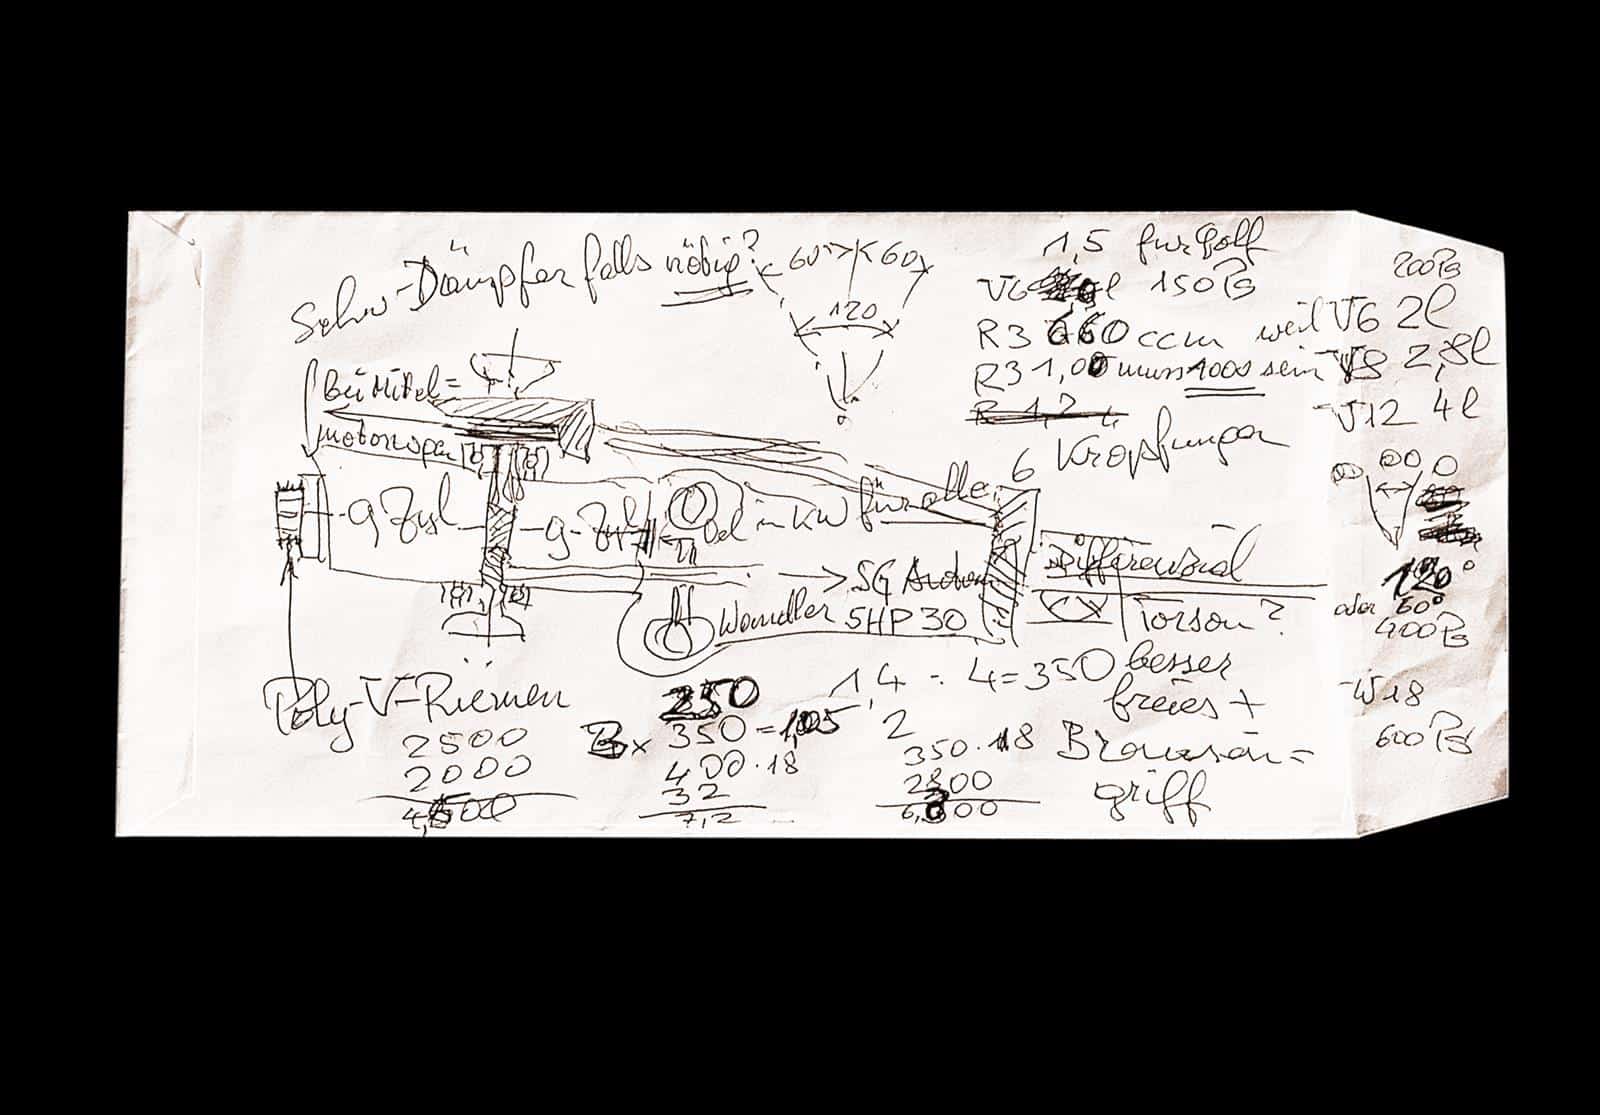 Schw-Dämpfer falls nötig?
60°
60
120
1,5 für Golf
V6
l 150 PS
R3 660 ccm weil V6 2l
R3 1,00 muss 1000 sein V8 2,8l
R 1,2
V12 4l
6 Kröpfungen
200 PS
Bei Mittel=
motorseper
9 Zyl
9-Zyl
Oel in KW für alle
SG
5HP30
Wandler
Differenzial
Torson?
120°
oder 60°
400 PS
W18
600 PS
Poly-V-Riemen
2500
2000
4,500
250
3x 350 = 1,05
400 · 18
32
7,2
1,4 : 4 = 350 besser
2
freies +
350 · 18
2800
6,300
griff